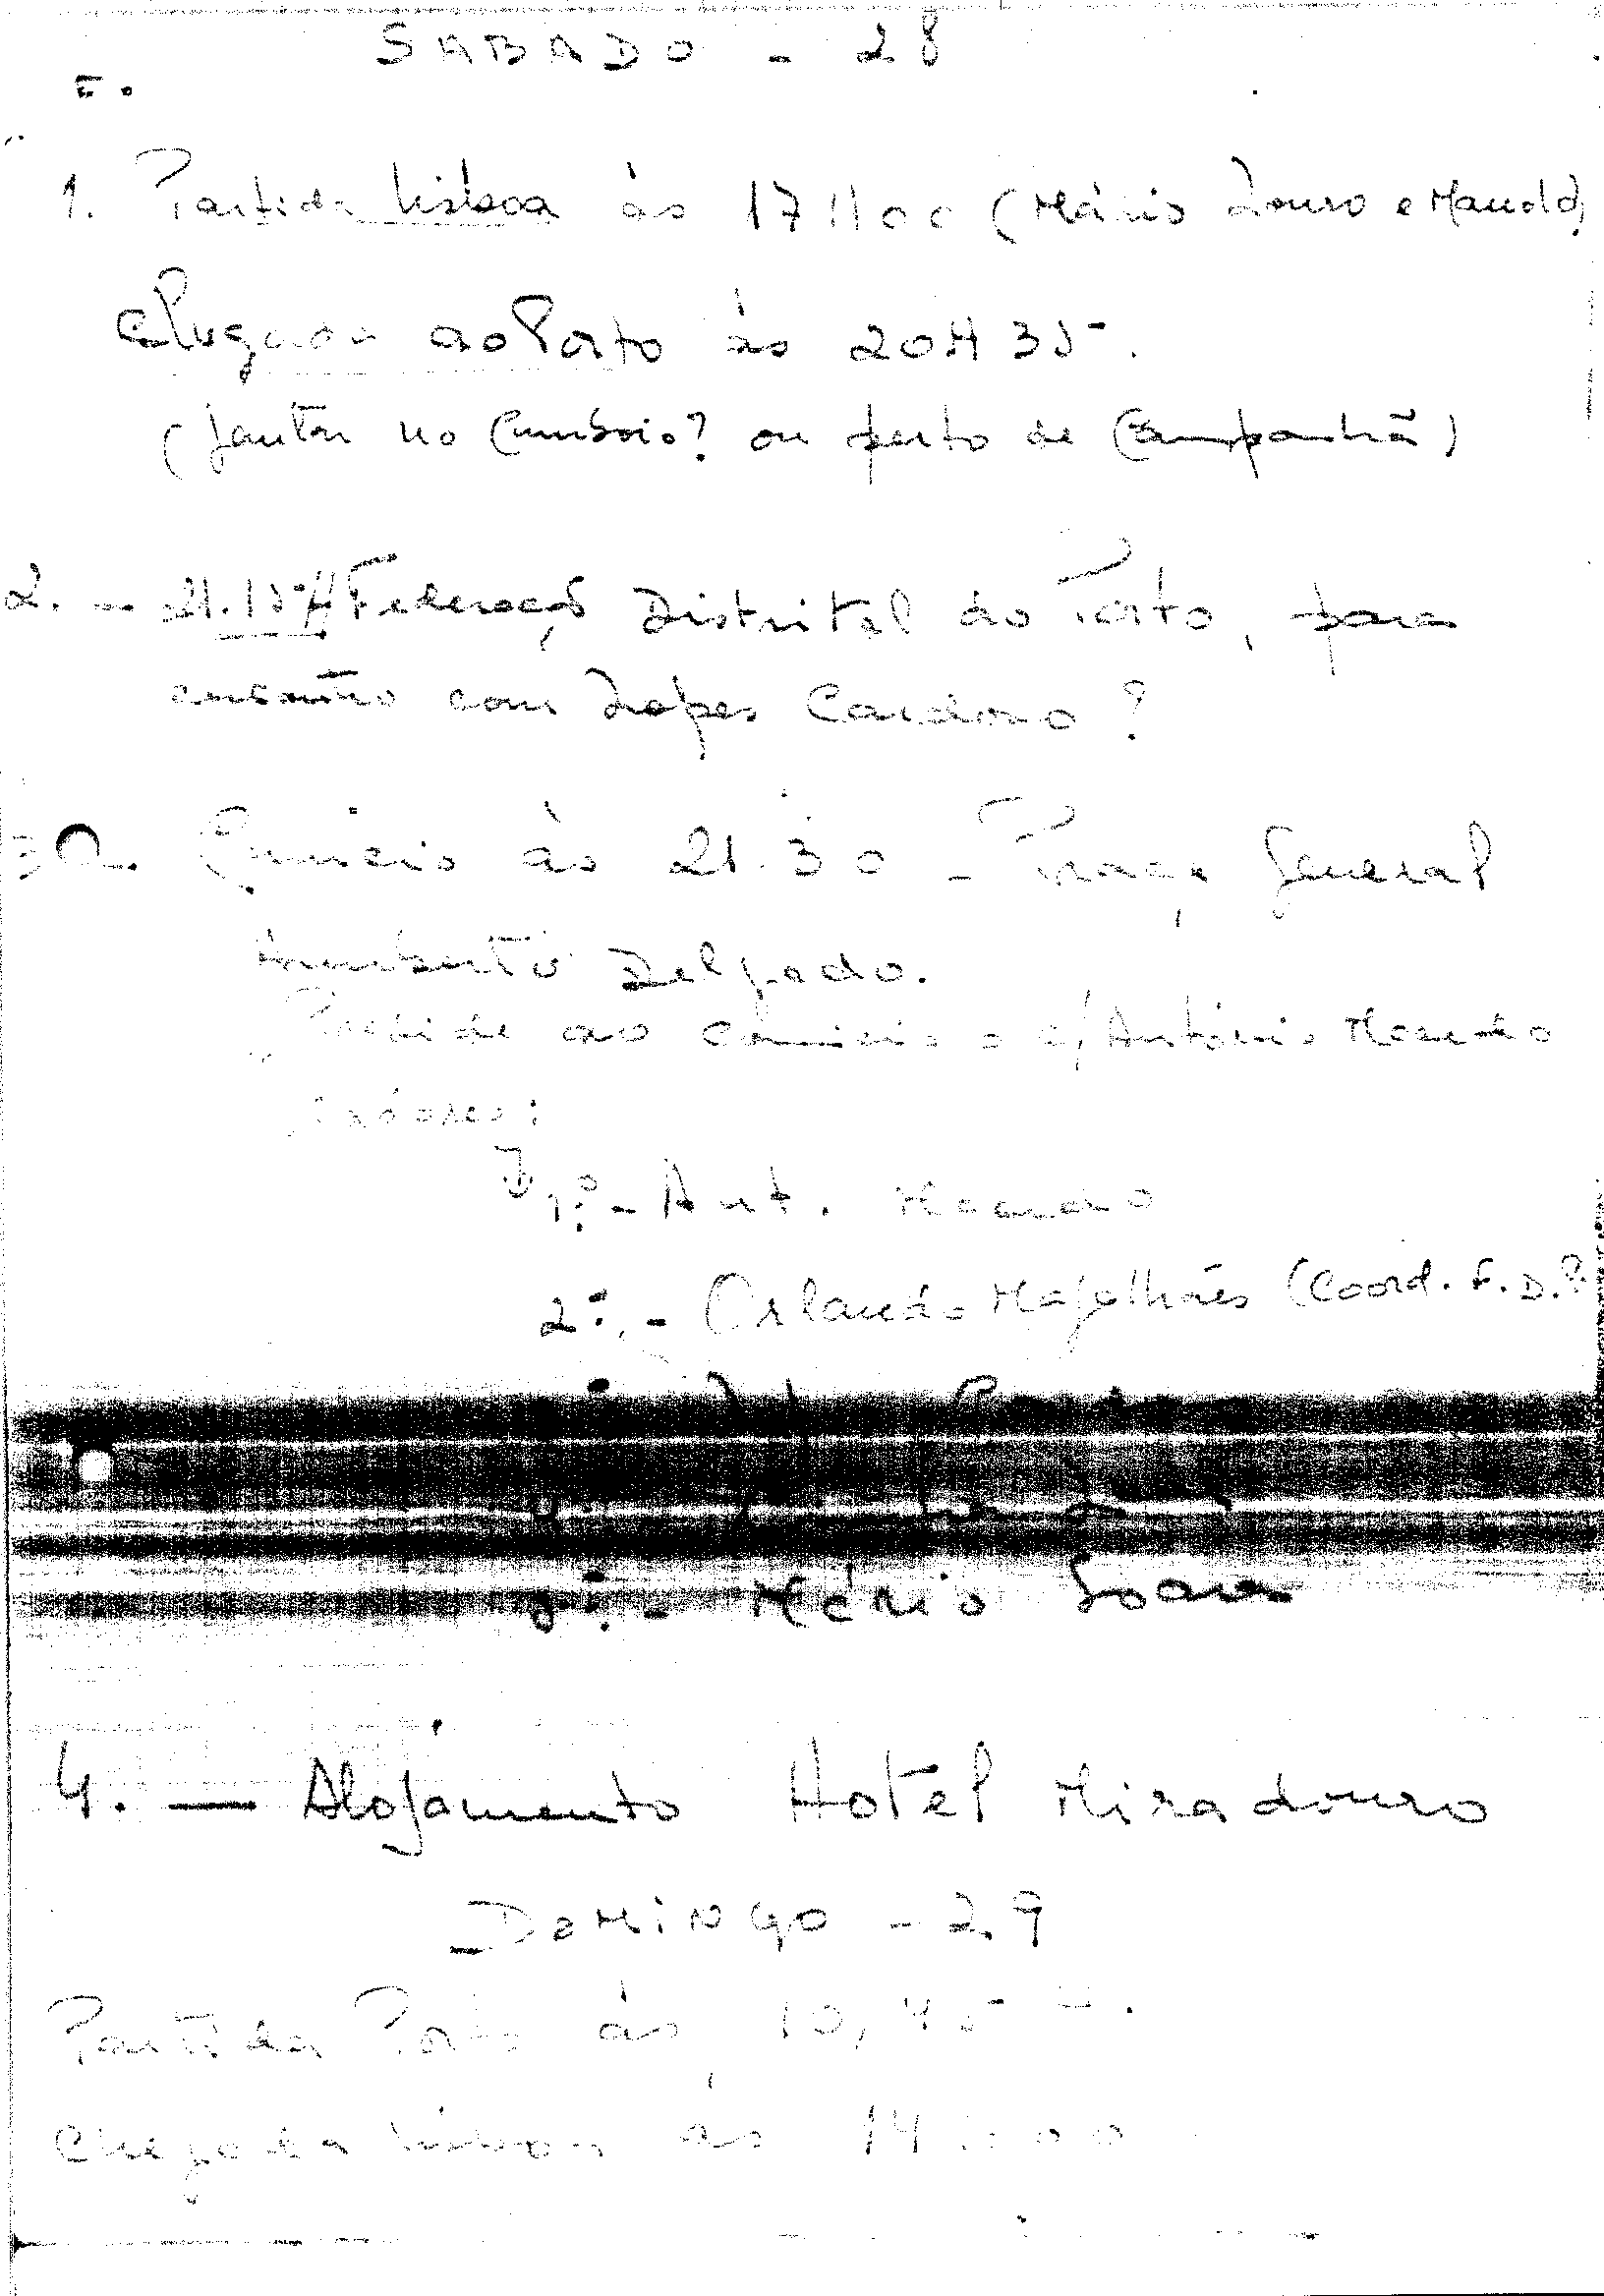 SABADO - 28
1. Partida Lisboa às 17H00 (Mário Louro e Manolo)
Chegada ao Porto às 20H35.
(Jantar no Comboio? ou perto de Campanhã)
2. - 21.15H Federação Distrital do Porto, para
encontro com Lopes Cardoso?
3. Comício às 21.30 - Praça General
Humberto Delgado.
Preside ao comício o c/ António Macedo
Oradores:
1º - Ant. Macedo
2º - Orlando Magalhães (Coord. F.D.?
- Mário Soares
4. — Alojamento Hotel Miradouro
DOMINGO - 29
Partida Porto às 10,45 H.
Chegada Lisboa às 14H00